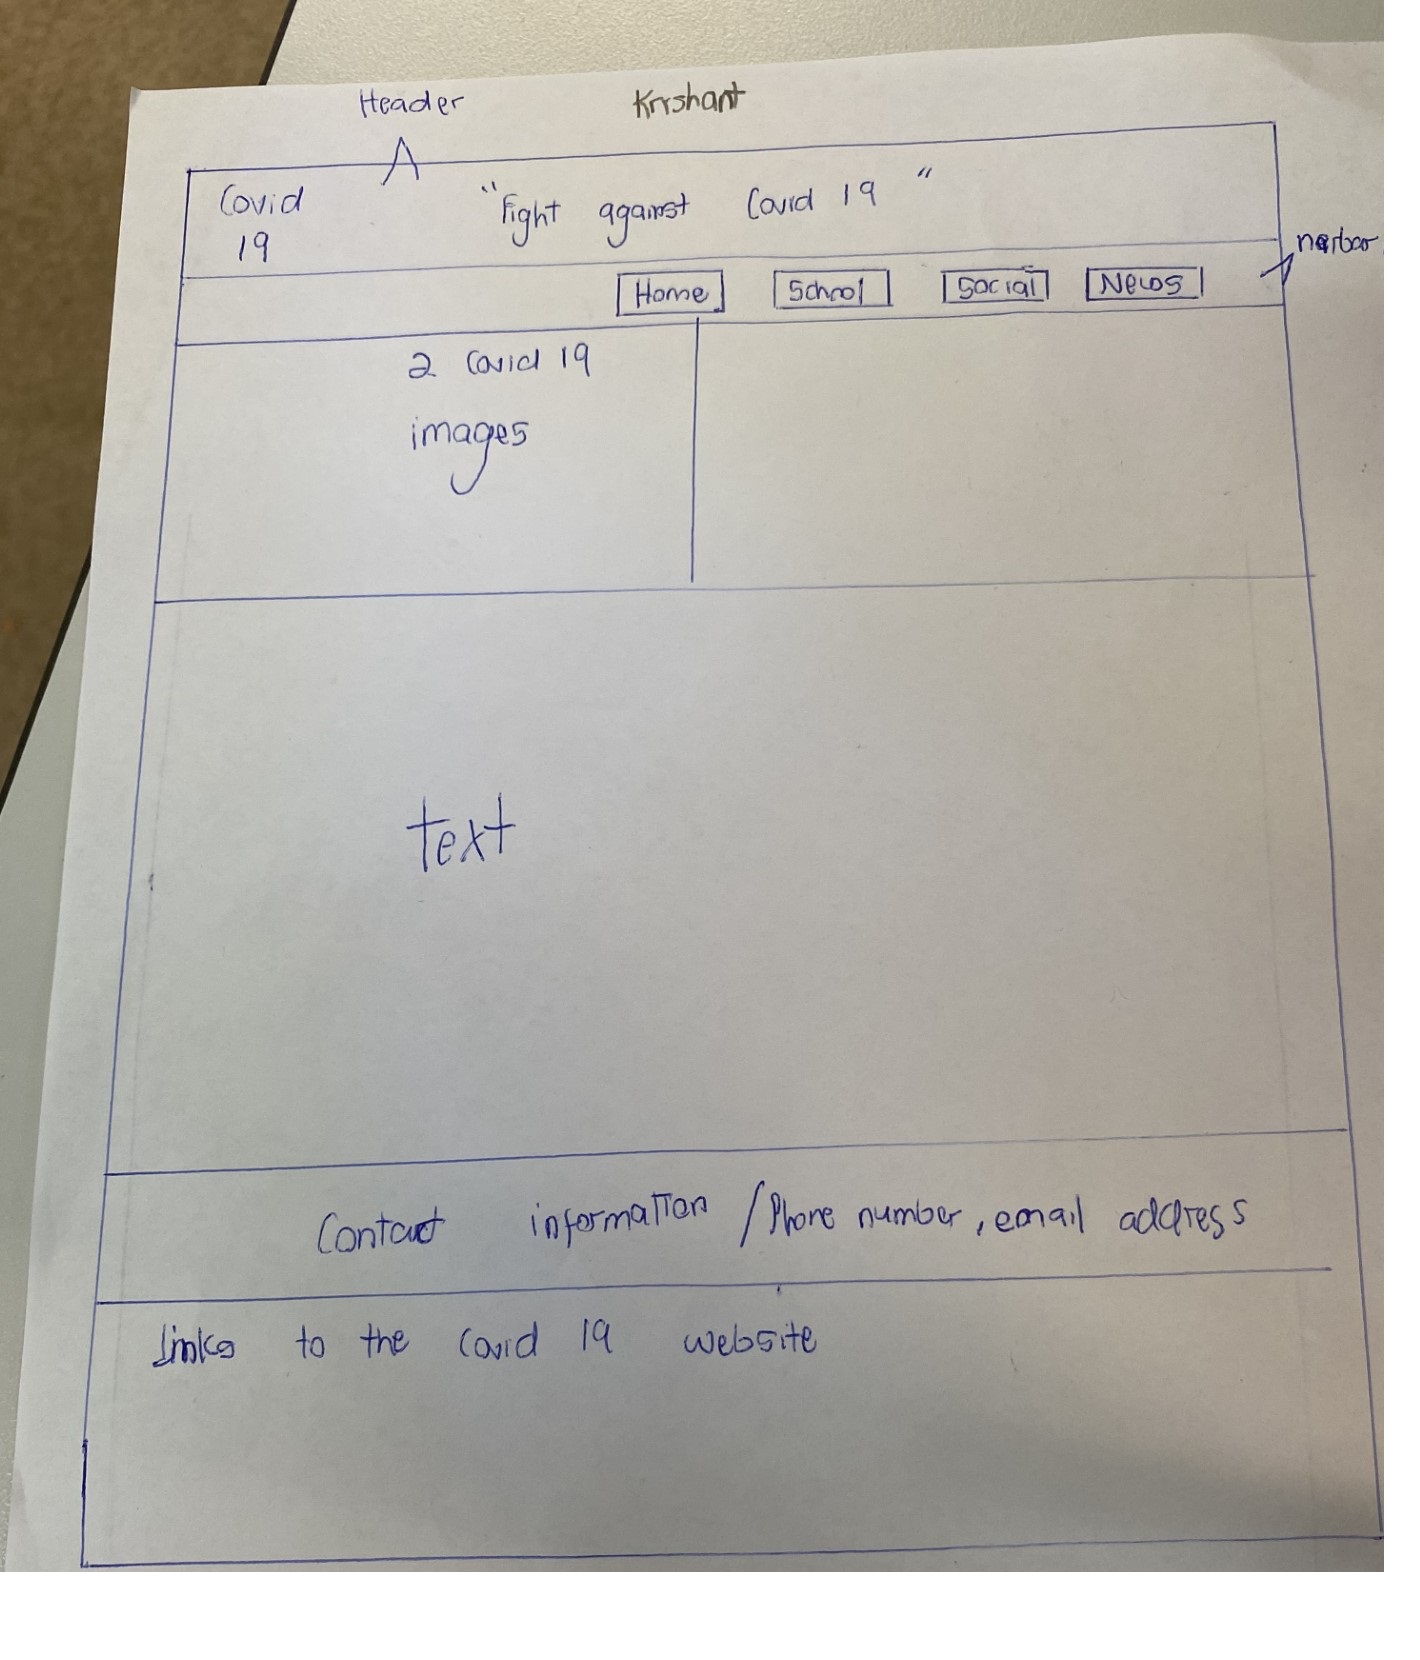 Header Krishant
Covid
19
"Fight against Covid 19"
navbar
Home School Social News
2 Covid 19
images
text
Contact information / Phone number, email address
Links to the Covid 19 website